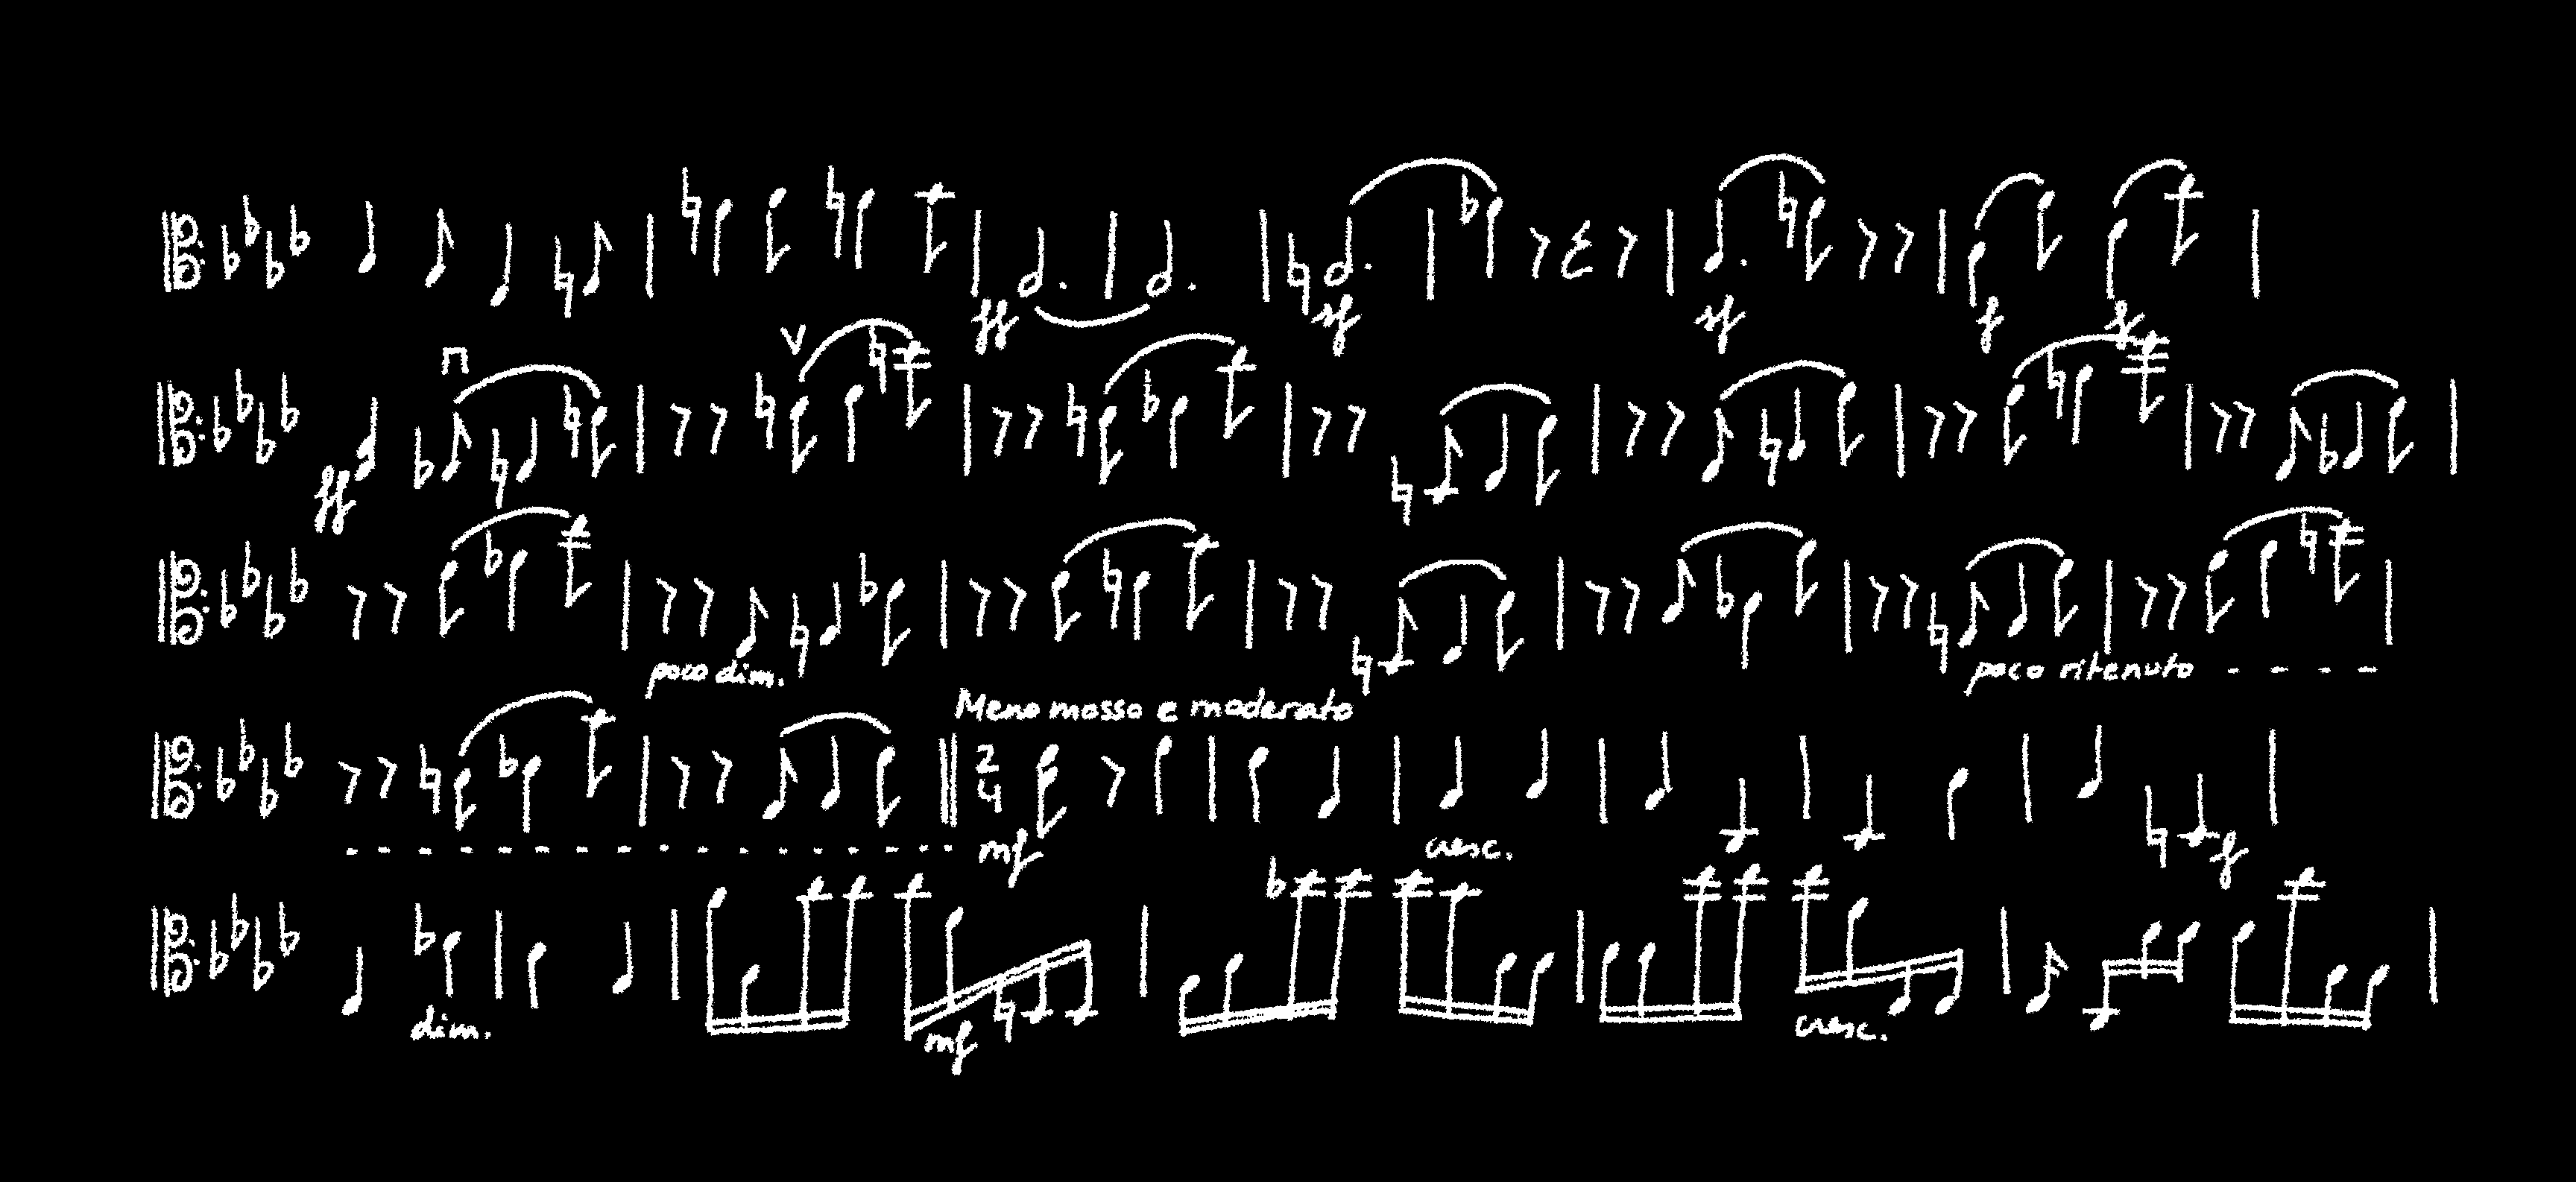 ff sf sf f f
V
ff
poco dim. poco ritenuto - - - -
Meno mosso e moderato
2
4
mf cresc. f
dim. mf cresc.